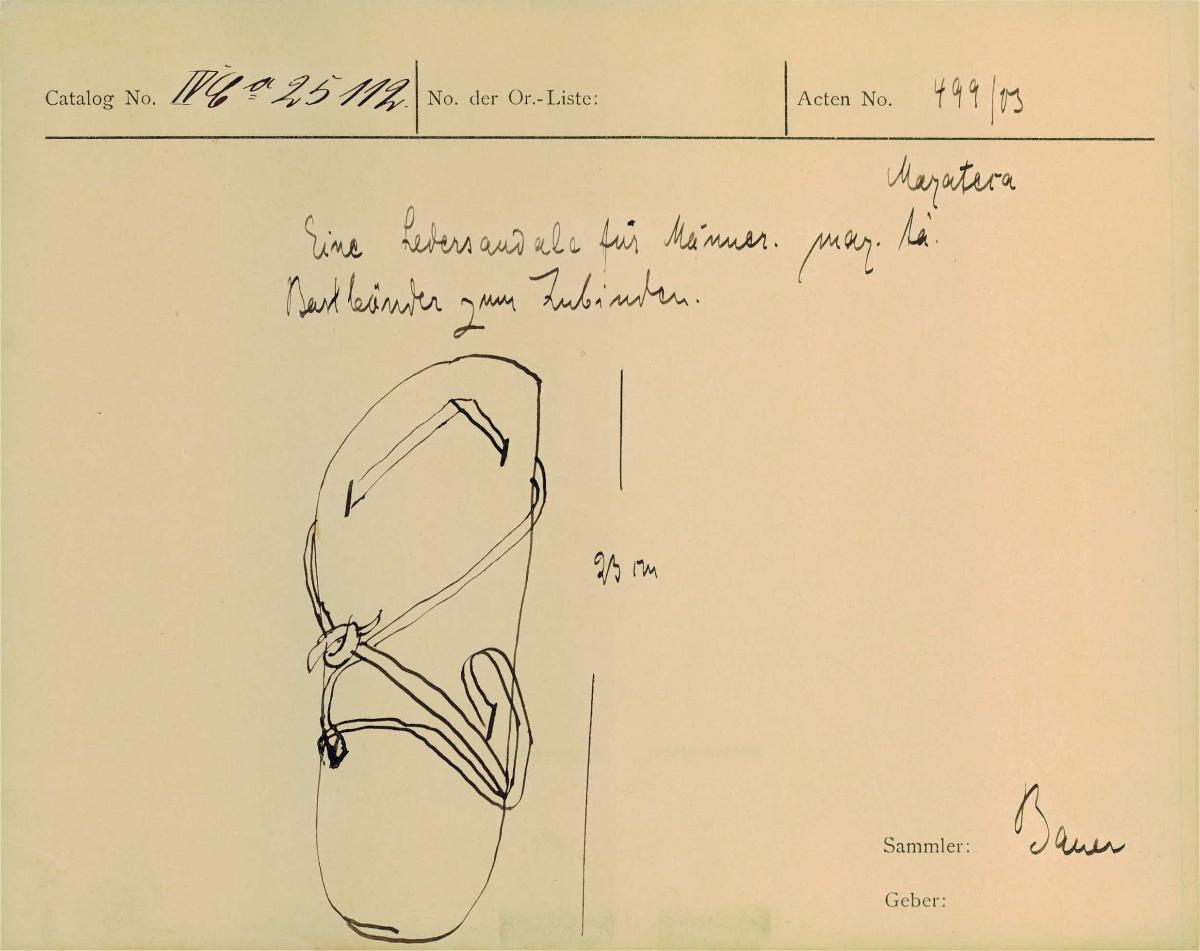 Catalog No. IV Ca 25112. No. der Or.-Liste: Acten No. 499/03
Mazateca
Eine Ledersandale für Männer. maz. tá.
Bastbänder zum Zubinden.
23 cm
Sammler: Bauer
Geber: